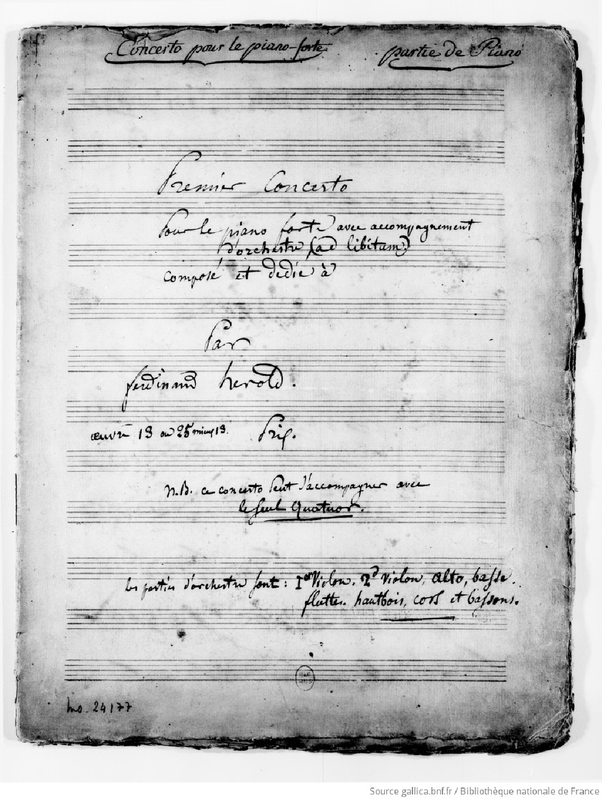 Concerto pour le piano-forte partie de Piano
Premier Concerto
Pour le piano forte avec accompagnement
d'orchestre (ad libitum)
composé et dedié à
Par
ferdinand herold.
œuvre 13 ou 25 mieux 13. Prix.
N.B. ce concerto peut s'accompagner avec
le seul Quatuor.
les parties d'orchestre sont: 1er Violon. 2d Violon, alto, basse.
fluttes. hautbois, cors et bassons.
Ms. 24177
Source gallica.bnf.fr / Bibliothèque nationale de France